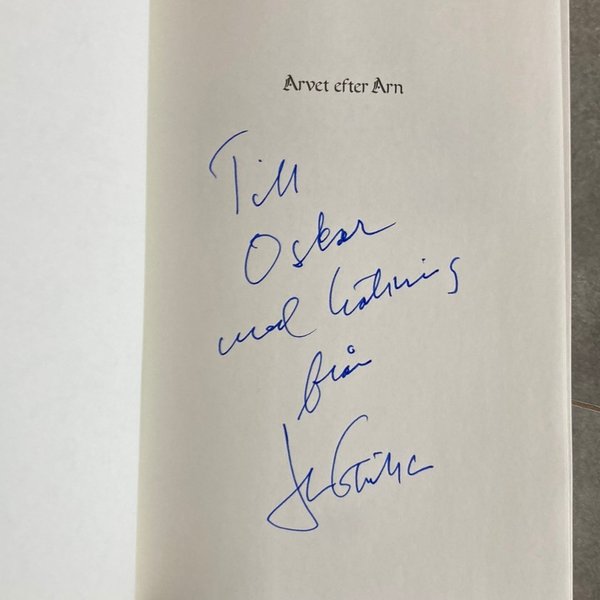 Arvet efter Arn
Till
Oskar
med hälsning
från
Jan Guillou